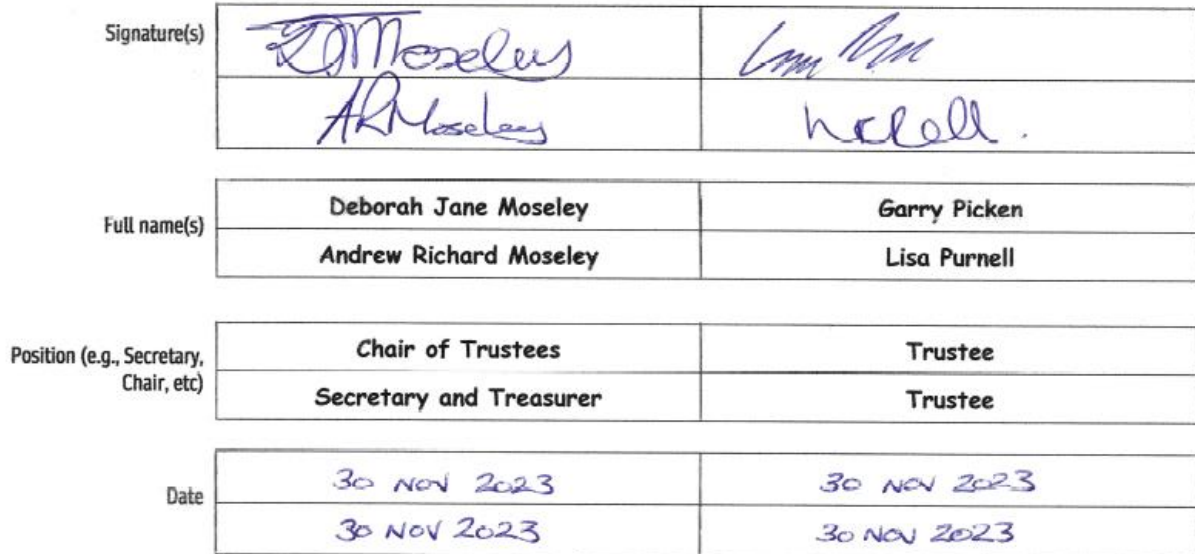 Signature(s)
DJMoseley
ARMoseley
Full name(s)
Deborah Jane Moseley Garry Picken
Andrew Richard Moseley Lisa Purnell
Position (e.g., Secretary, Chair of Trustees Trustee
Chair, etc) Secretary and Treasurer Trustee
Date
30 NOV 2023 30 NOV 2023
30 NOV 2023 30 NOV 2023